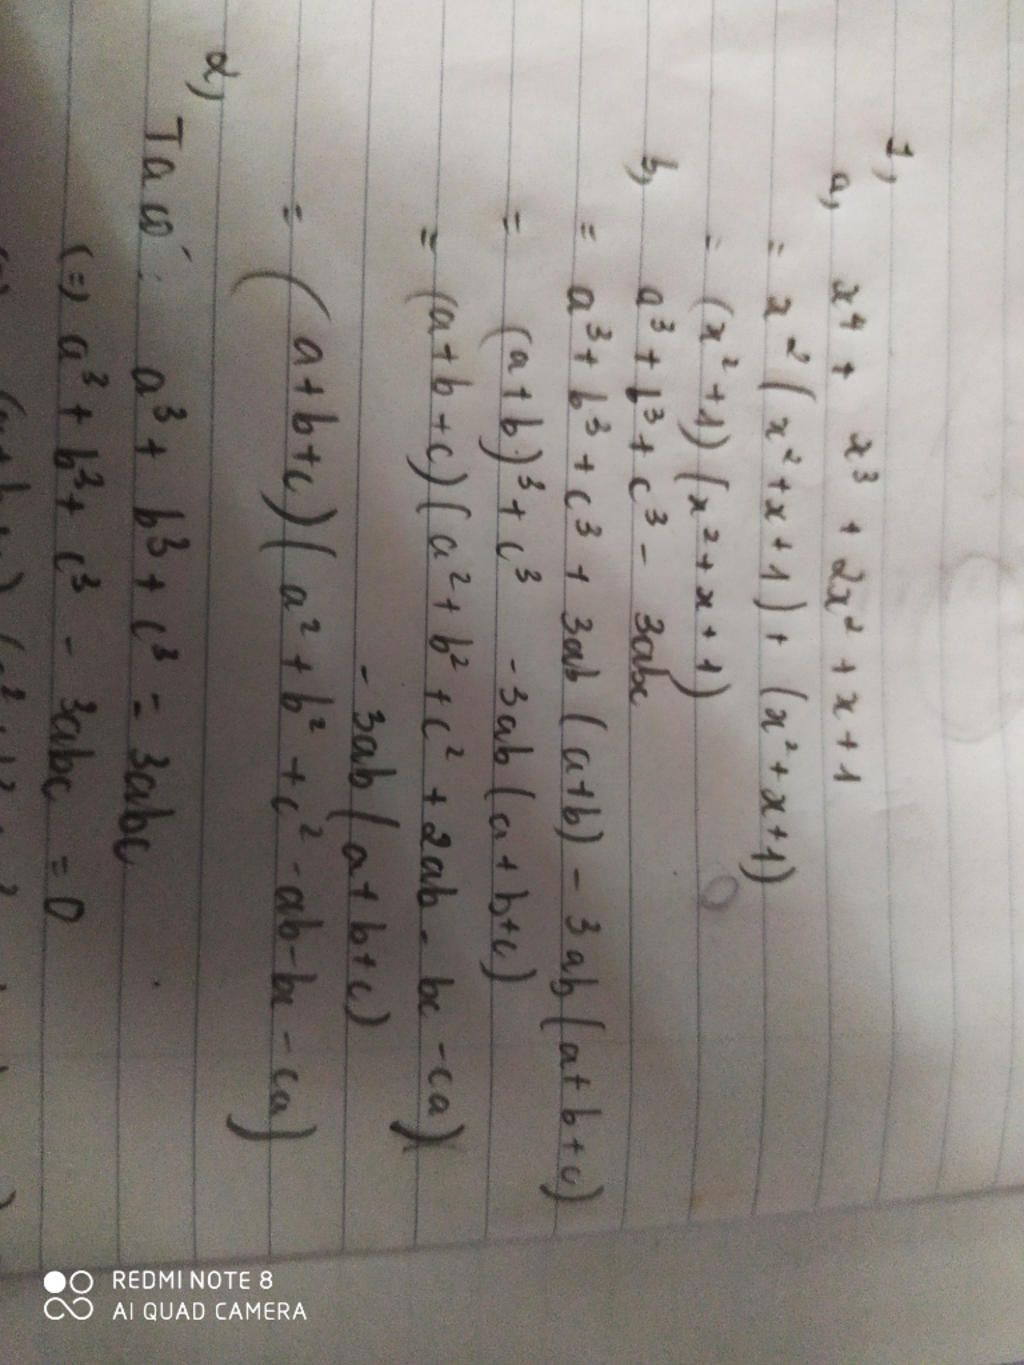 1,
a, x⁴ + x³ + 2x² + x + 1
= x² (x² + x + 1) + (x² + x + 1)
= (x² + 1) (x² + x + 1)
b, a³ + b³ + c³ - 3abc
= a³ + b³ + c³ + 3ab (a+b) - 3ab (a+b+c)
= (a+b)³ + c³ - 3ab (a+b+c)
= (a+b+c) (a² + b² + c² + 2ab - bc - ca)
- 3ab (a+b+c)
= (a+b+c) (a² + b² + c² - ab - bc - ca)
2,
Ta có: a³ + b³ + c³ = 3abc
(=) a³ + b³ + c³ - 3abc = 0
REDMI NOTE 8
AI QUAD CAMERA